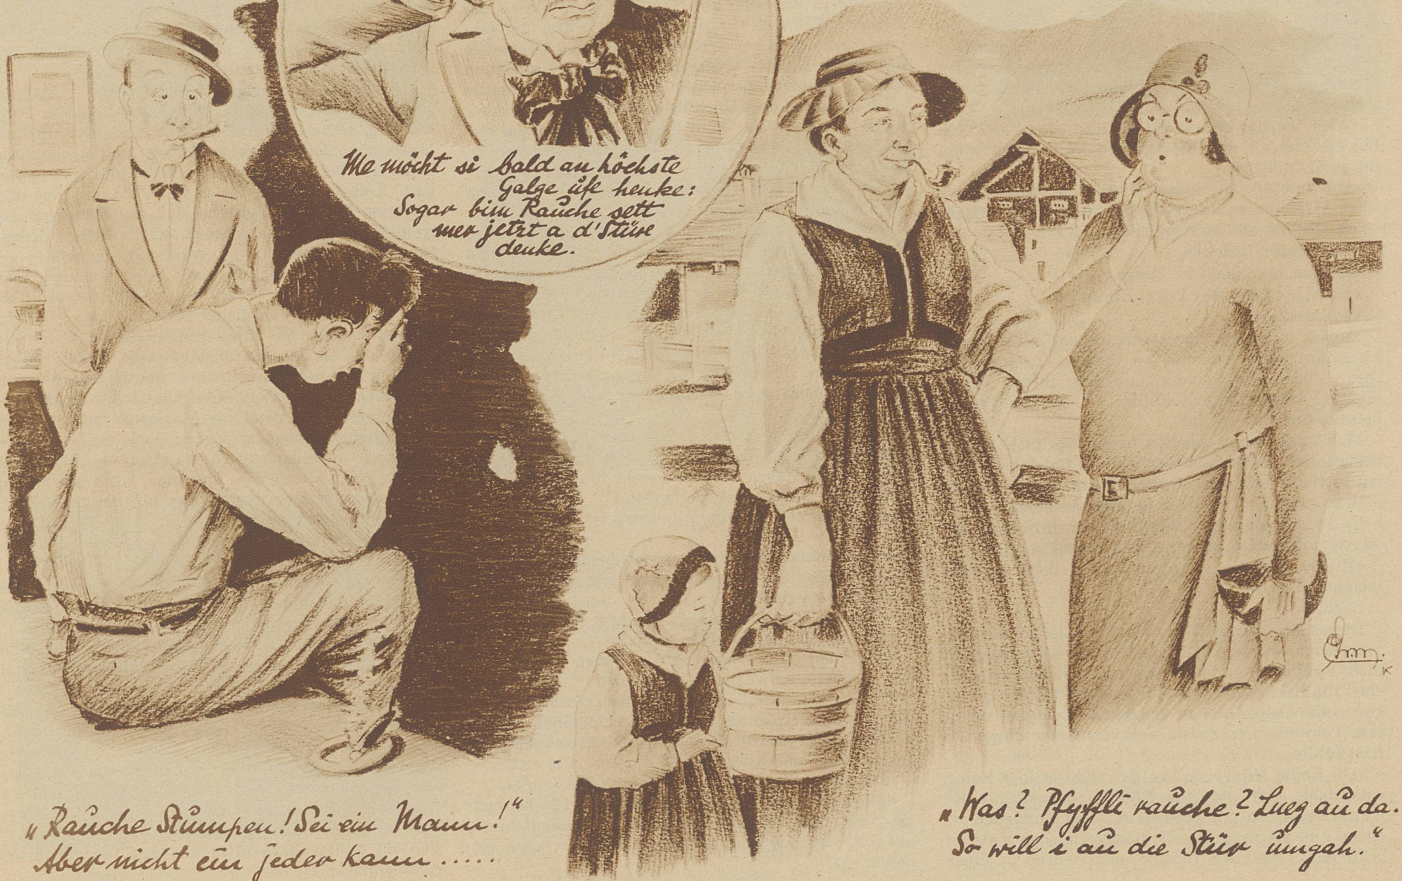 Me möcht si bald an höchste
Galge ufe henke:
Sogar bim Rauche sett
mer jetzt a d'Stüre
denke.
„Rauche Stumpen! Sei ein Mann!“
Aber nicht ein jeder kann .....
„Was? Pfyffli rauche? Lueg au da.
So will i au die Stür umgah.“